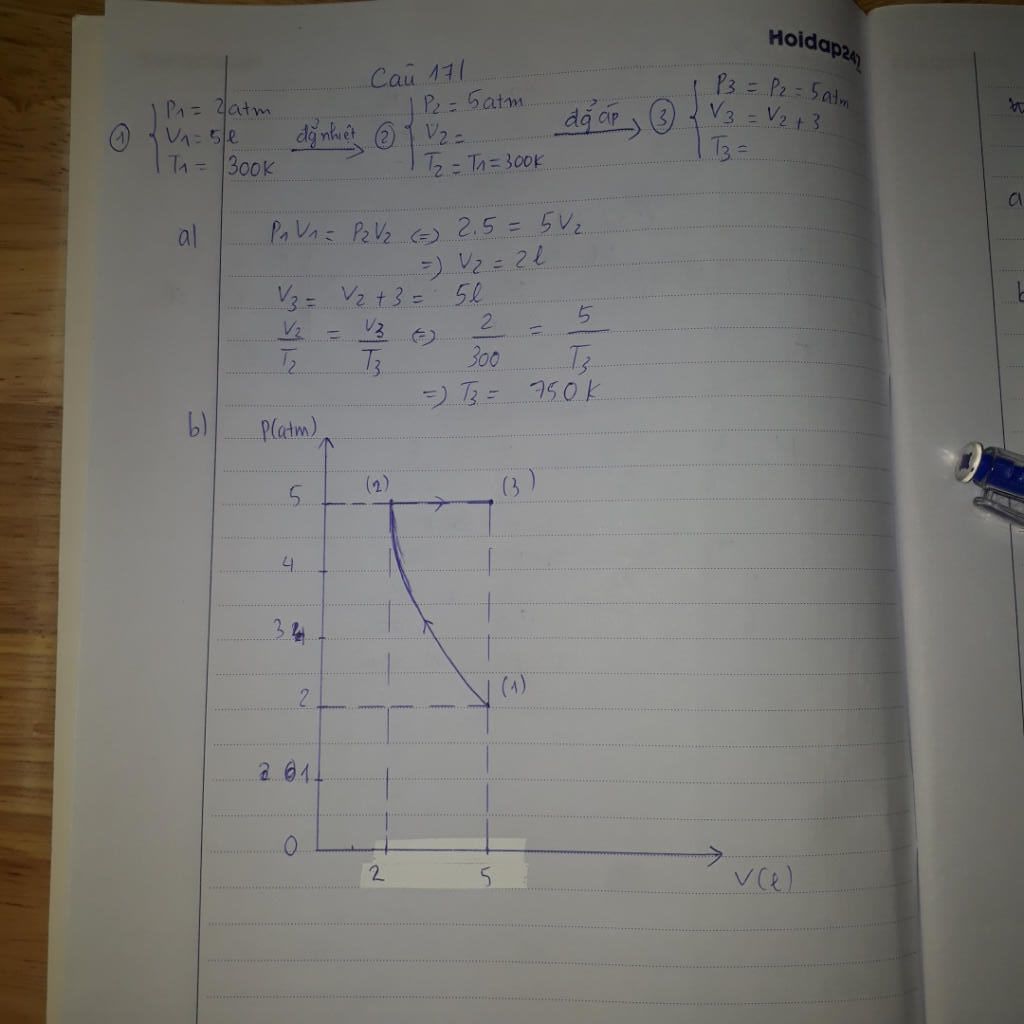 Hoidap247
Câu 17/
① P1 = 2atm
V1 = 5l
T1 = 300K
đẳ nhiệt
② P2 = 5atm
V2 =
T2 = T1 = 300K
đẳ áp
③ P3 = P2 = 5atm
V3 = V2 + 3
T3 =
a) P1V1 = P2V2 <=> 2.5 = 5V2
=> V2 = 2l
V3 = V2 + 3 = 5l
V2/T2 = V3/T3 <=> 2/300 = 5/T3
=> T3 = 750K
b) P(atm)
5 (2) (3)
4
3
2 (1)
1
0
2 5 V(l)